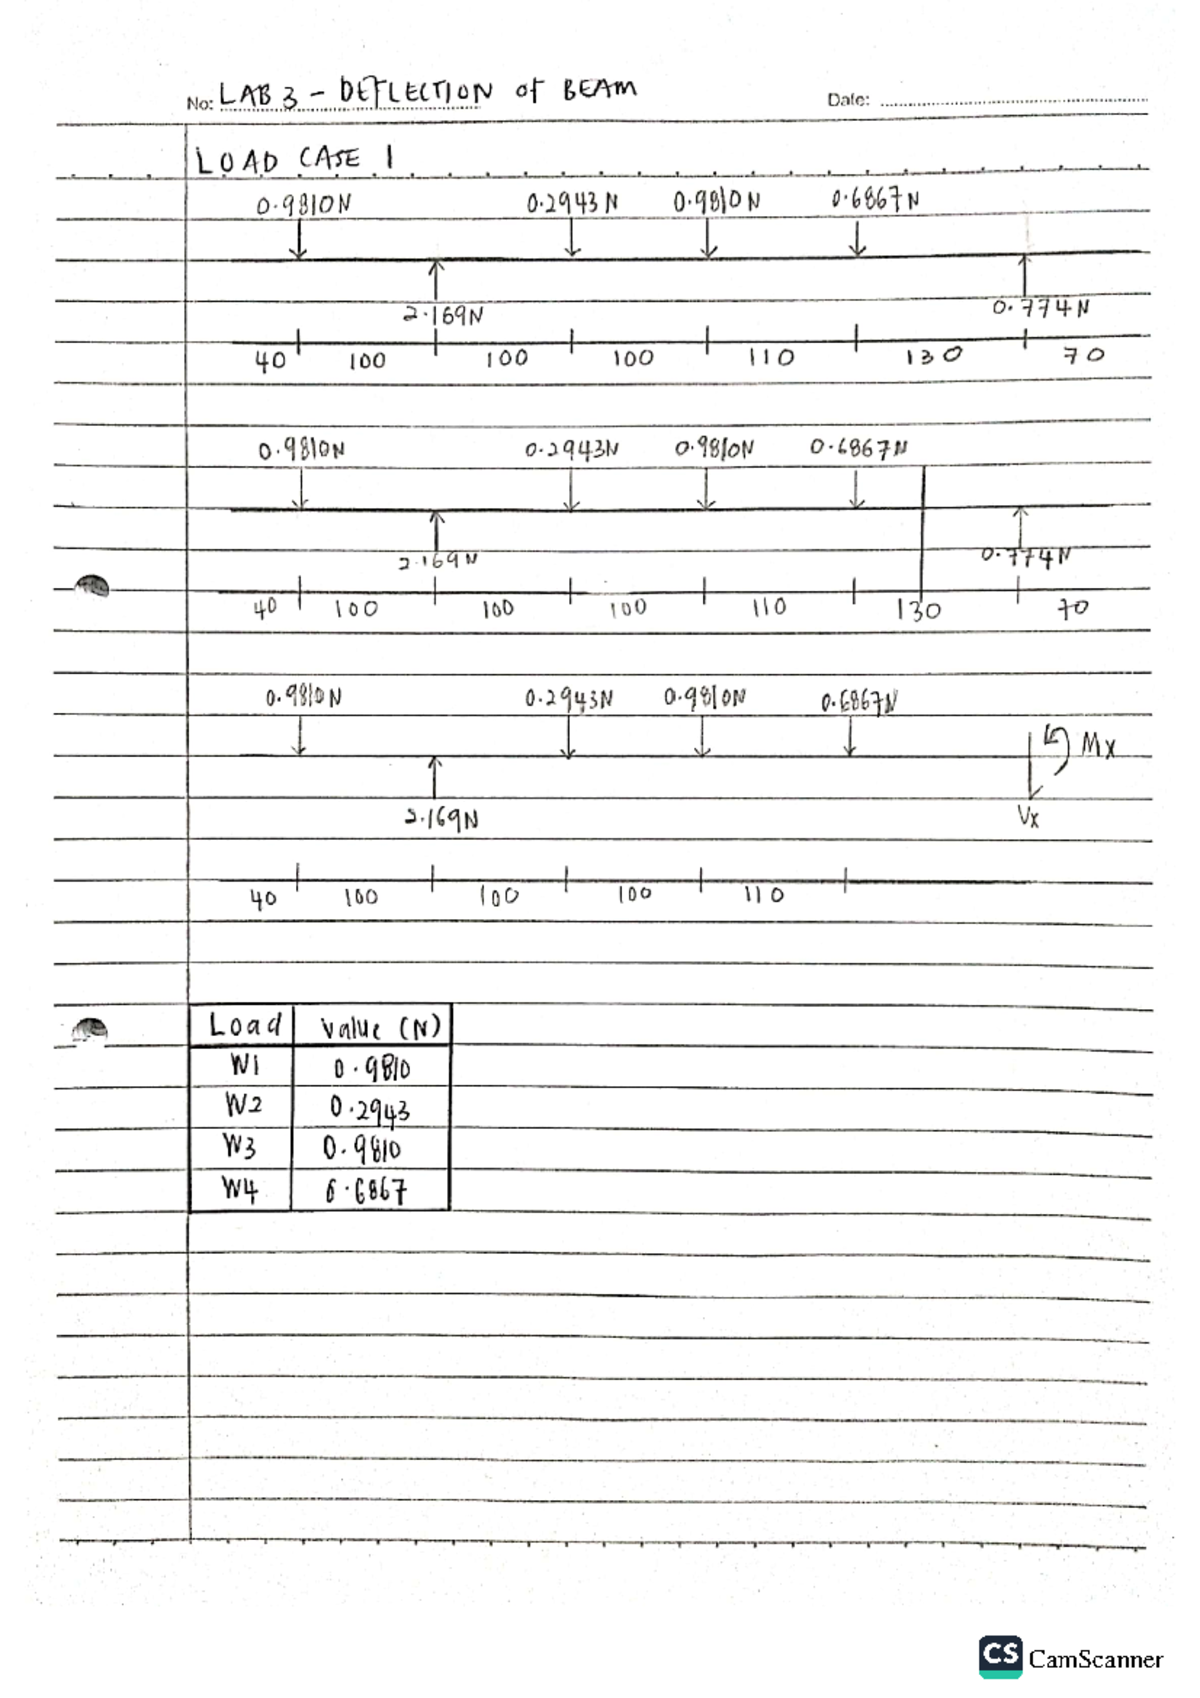 No: LAB 3 - DEFLECTION of BEAM Date:
LOAD CASE 1
0.9810N 0.2943N 0.9810N 0.6867N
2.169N 0.774N
40 100 100 100 110 130 70
0.9810N 0.2943N 0.9810N 0.6867N
2.169N 0.774N
40 100 100 100 110 130 70
0.9810N 0.2943N 0.9810N 0.6867N
Mx
2.169N Vx
40 100 100 100 110
Load value (N)
W1 0.9810
W2 0.2943
W3 0.9810
W4 0.6867
CS CamScanner